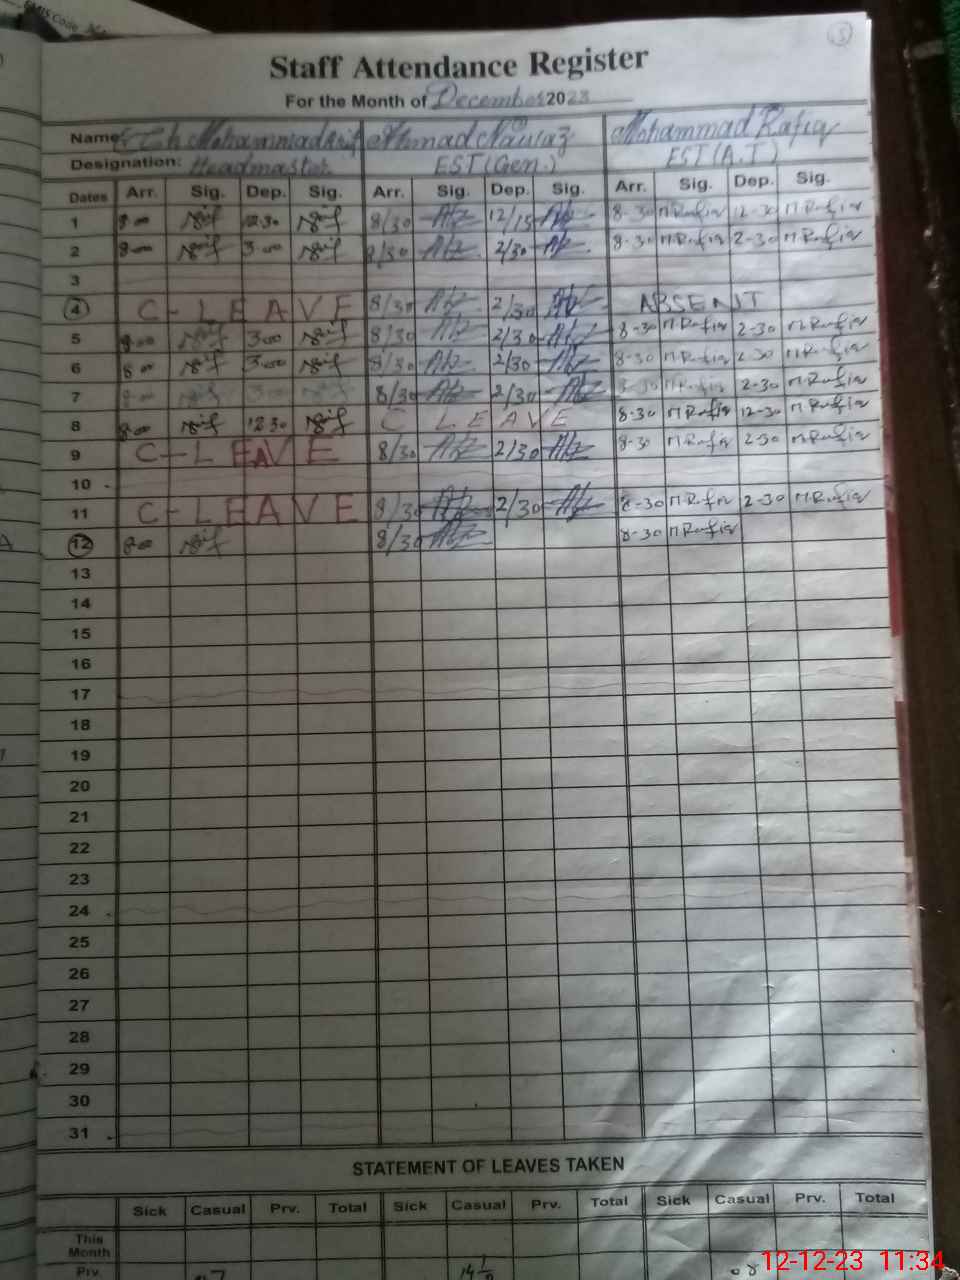 EMIS Code
5
Staff Attendance Register
For the Month of December 2023
Name Ch Mohammad Arif Ahmad Nawaz Mohammad Rafiq
Designation: Headmaster EST (Gen.) EST (A.T)
Dates Arr. Sig. Dep. Sig. Arr. Sig. Dep. Sig. Arr. Sig. Dep. Sig.
1 8 00 12 30 8/30 12/15 8-30 M Rafiq 12-30 M Rafiq
2 8 00 3 00 8/30 2/30 8-30 M Rafiq 2-30 M Rafiq
3
4 C-LEAVE 8/30 2/30 ABSENT
5 8 00 3 00 8/30 2/30 8-30 M Rafiq 2-30 M Rafiq
6 8 00 3 00 8/30 2/30 8-30 M Rafiq 2-30 M Rafiq
7 8 00 3 00 8/30 2/30 8-30 M Rafiq 2-30 M Rafiq
8 8 00 12 30 C LEAVE 8-30 M Rafiq 12-30 M Rafiq
9 C-LEAVE 8/30 2/30 8-30 M Rafiq 2-30 M Rafiq
10
11 C-LEAVE 8/30 2/30 8-30 M Rafiq 2-30 M Rafiq
12 8 00 8/30 8-30 M Rafiq
13
14
15
16
17
18
19
20
21
22
23
24
25
26
27
28
29
30
31
STATEMENT OF LEAVES TAKEN
Sick Casual Prv. Total Sick Casual Prv. Total Sick Casual Prv. Total
This
Month
Prv.
12-12-23 11:34